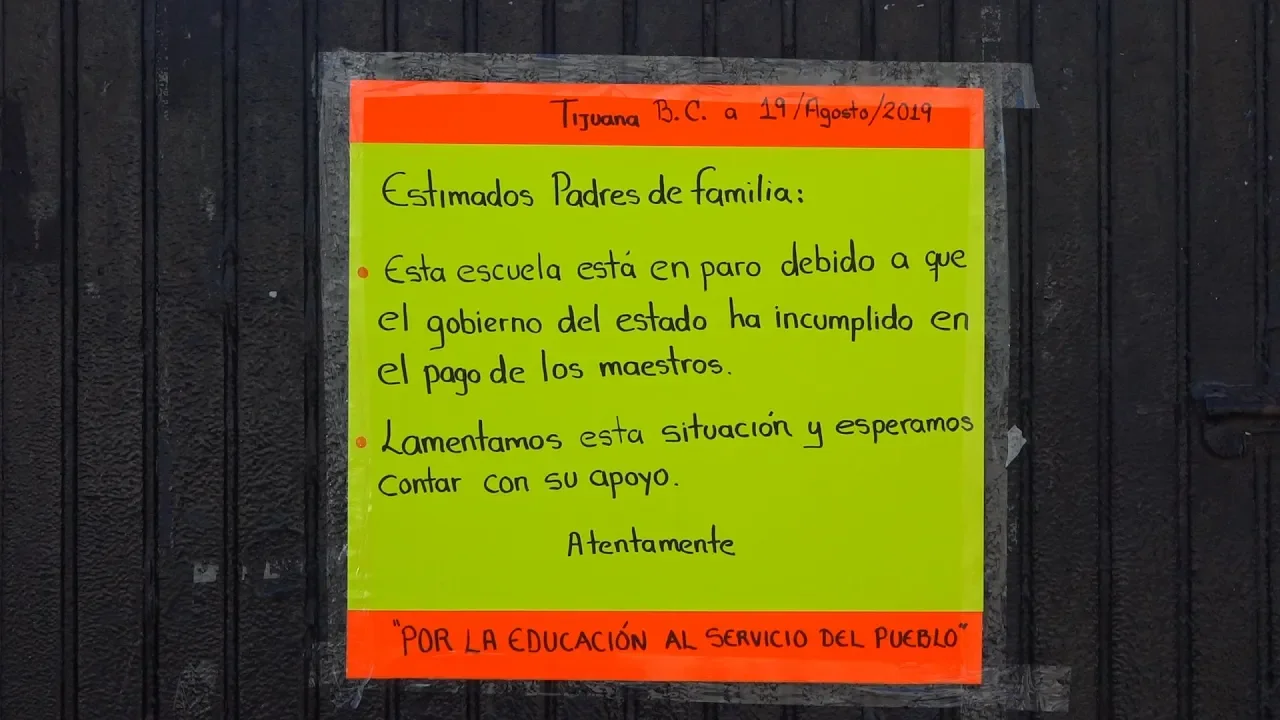 Tijuana B.C. a 19/Agosto/2019
Estimados Padres de familia:
• Esta escuela está en paro debido a que
el gobierno del estado ha incumplido en
el pago de los maestros.
• Lamentamos esta situación y esperamos
contar con su apoyo.
Atentamente
"POR LA EDUCACIÓN AL SERVICIO DEL PUEBLO"